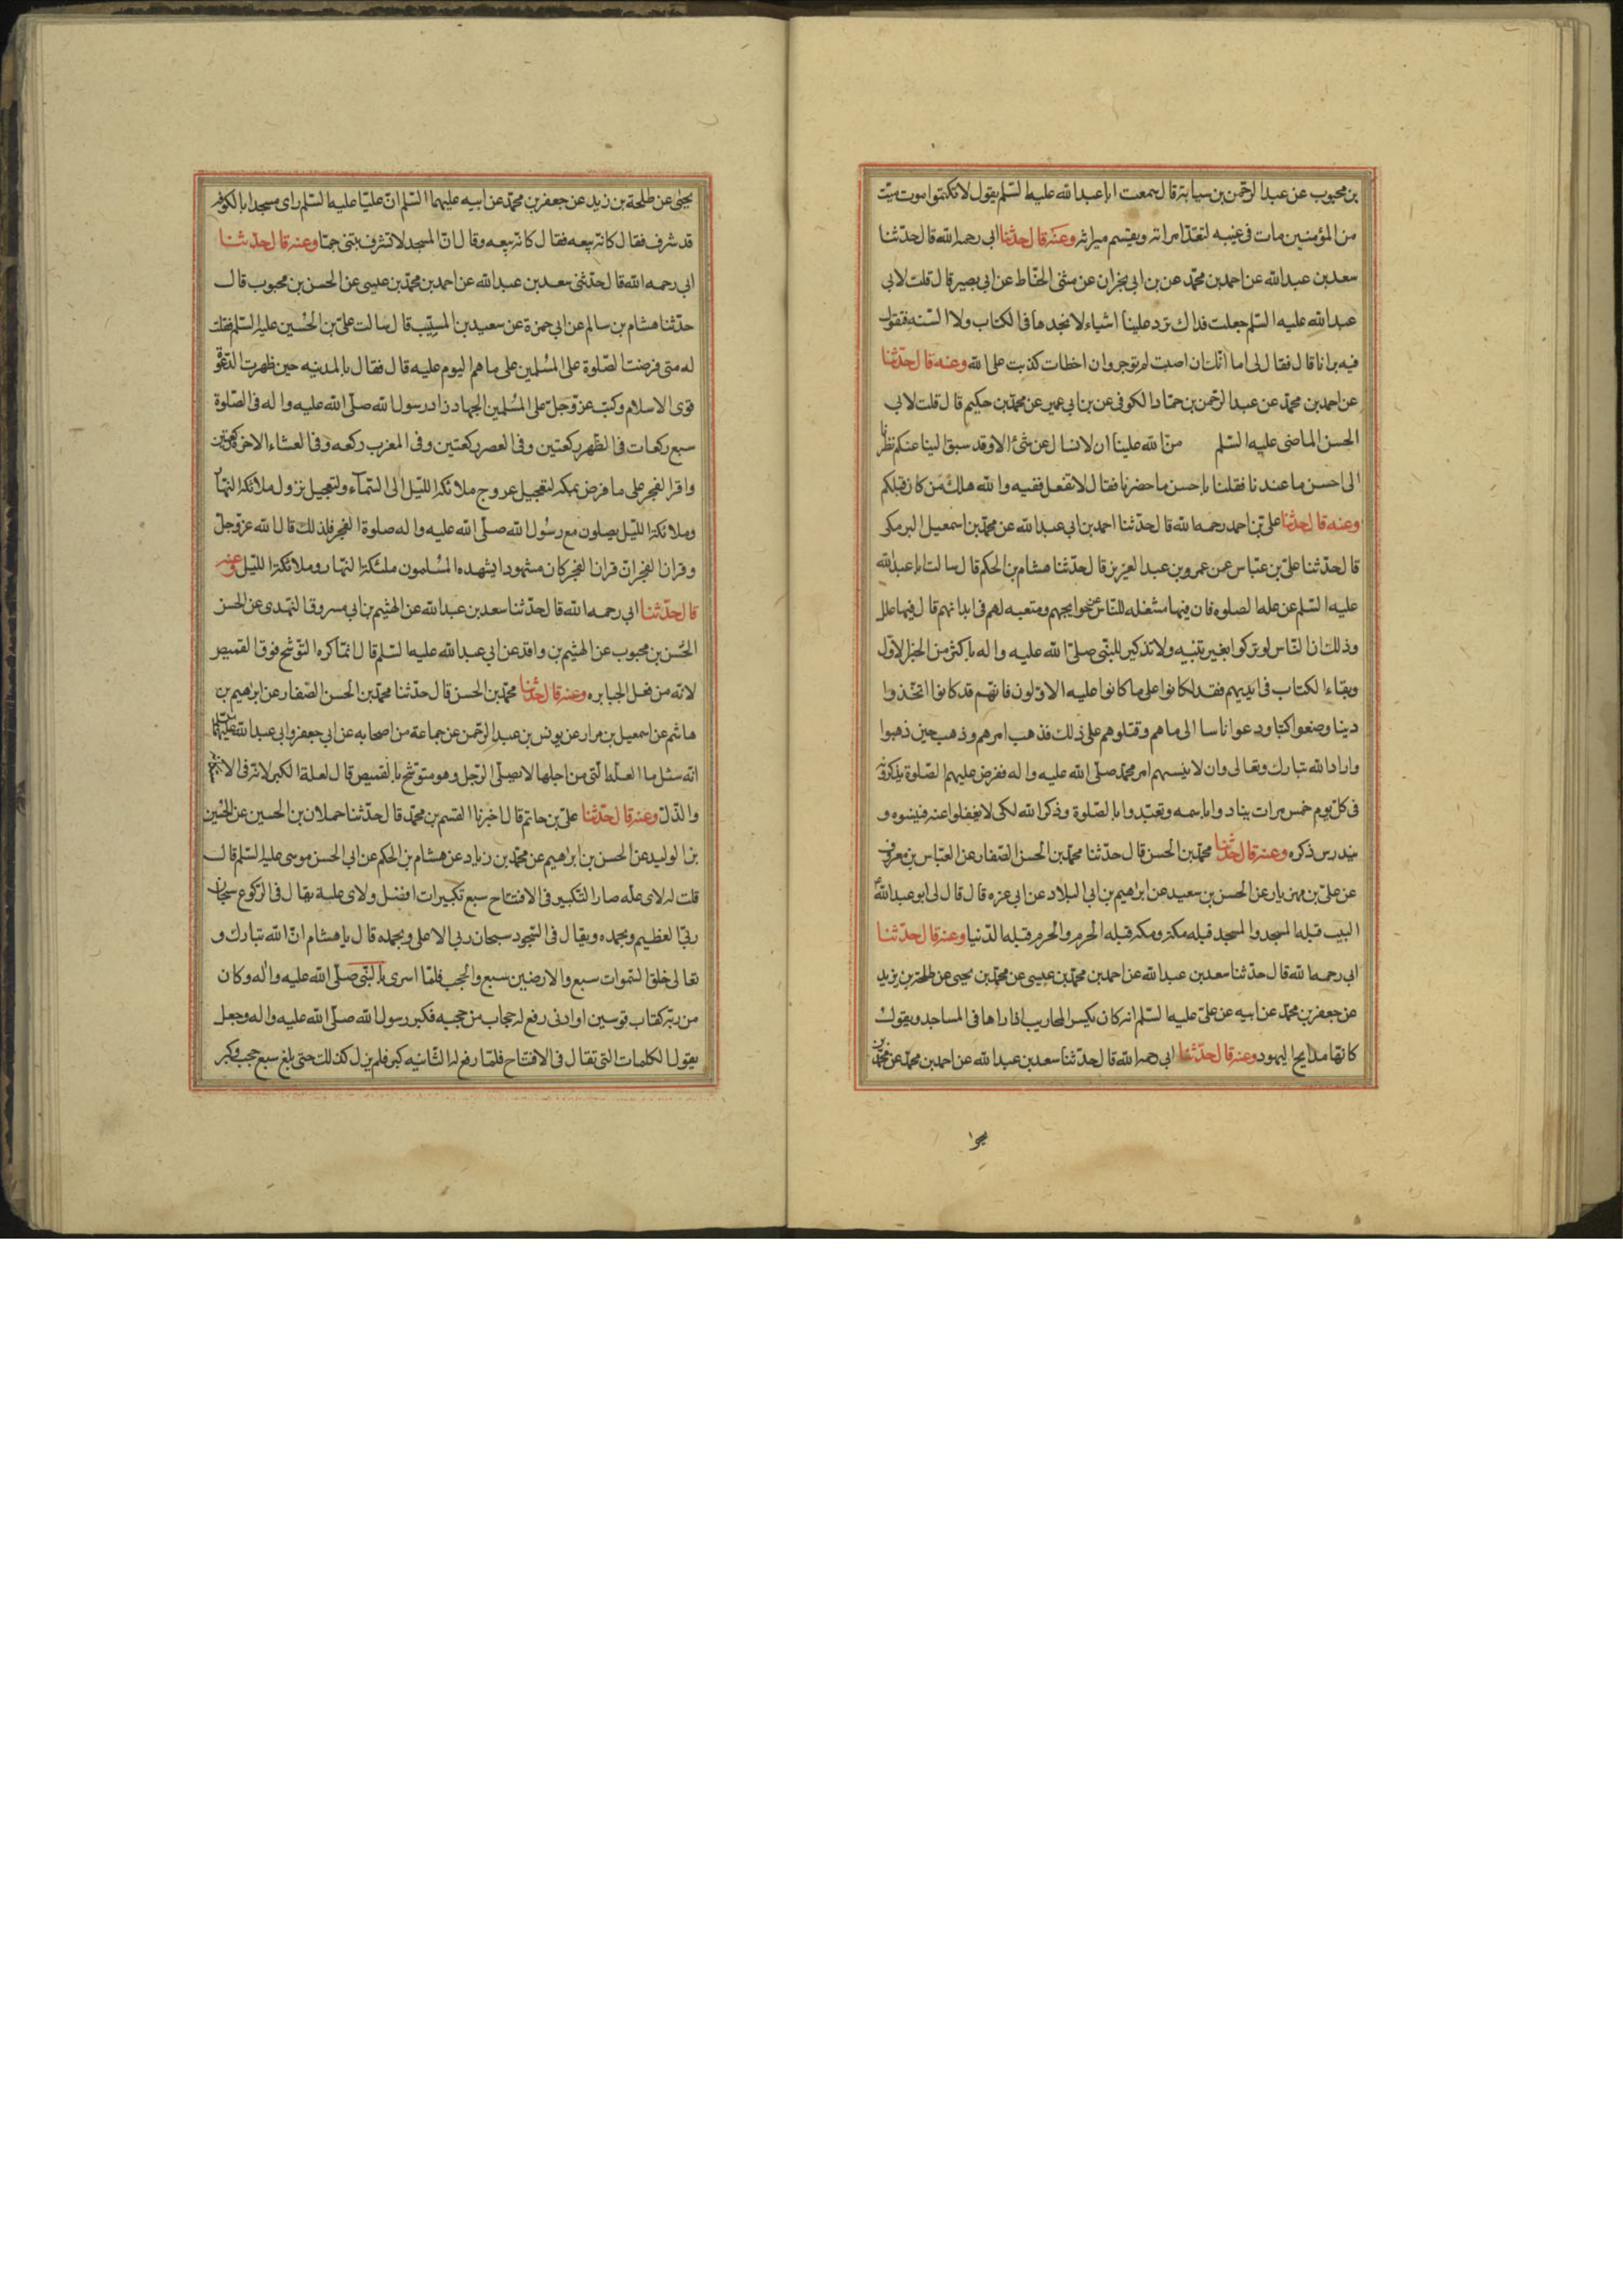 بن محبوب عن عبد الرحمن بن سيابة قال سمعت ابا عبد الله عليه السلم يقول لا تكتموا موت ميت
من المؤمنين مات في غيبه لتعتد امراته ويقسم ميراثه وعنه قال حدثنا ابي رحمه الله قال حدثنا
سعد بن عبد الله عن احمد بن محمد عن بن ابي نجران عن مثنى الحناط عن ابي بصير قال قلت لابي
عبد الله عليه السلم جعلت فداك ترد علينا اشياء لا نجدها في الكتاب ولا السنه فنقول
فيه براينا قال فقال لى اما انك ان اصبت لم توجر وان اخطات كذبت على الله وعنه قال حدثنا
عن احمد بن محمد عن عبد الرحمن بن حماد الكوفى عن بن ابي عمير عن محمد بن حكيم قال قلت لابي
الحسن الماضى عليه السلم من الله علينا ان لا نسال عن شئ الا وقد سبق الينا عنكم نظرنا
الى احسن ما عندنا فقلنا باحسن ما حضرنا فقال لا تفعل ففيه والله هلك من كان قبلكم
وعنه قال حدثنا على بن احمد رحمه الله قال حدثنا احمد بن ابي عبد الله عن محمد بن اسمعيل البرمكى
قال حدثنا على بن عباس عن عمرو بن عبد العزيز قال حدثنا هشام بن الحكم قال سالت ابا عبد الله
عليه السلم عن عله الصلوه فان فيها مشغله للناس عن حوايجهم ومتعبه لهم فى ابدانهم قال فيها علل
وذلك ان الناس لو تركوا بغير تنبيه ولا تذكير للنبى صلى الله عليه واله باكثر من الخبر الاول
وبقاء الكتاب فى ايديهم فقط لكانوا على ما كانوا عليه الاولون فانهم قد كانوا اتخذوا
دينا وضعوا كتبا ودعوا اناسا الى ما هم وقتلوهم على ذلك فذهب امرهم وذهب حين ذهبوا
واراد الله تبارك وتعالى وان لا ينسيهم امر محمد صلى الله عليه واله ففرض عليهم الصلوة يذكرونه
فى كل يوم خمس مرات ينادوا باسمه وتعبدوا بالصلوة وذكر الله لكى لا يغفلوا عنه فينسوه و
يندرس ذكره وعنه قال حدثنا محمد بن الحسن قال حدثنا محمد بن الحسن الصفار عن العباس بن معروف
عن على بن مهزيار عن الحسن بن سعيد عن ابراهيم بن ابي البلاد عن ابي عزه قال قال لى ابو عبد الله
البيت قبله المسجد والمسجد قبله مكه ومكه قبله الحرم والحرم قبله الدنيا وعنه قال حدثنا
ابي رحمه الله قال حدثنا سعد بن عبد الله عن احمد بن محمد بن عيسى عن محمد بن يحيى عن طلحة بن يزيد
عن جعفر بن محمد عن ابيه عن على عليه السلم انه كان يكسر المحاريب اذا راها فى المساجد ويقول
كانها مذابح اليهود وعنه قال حدثنا ابى رحمه الله قال حدثنا سعد بن عبد الله عن احمد بن محمد عن محمد بن
يحيى عن طلحة بن زيد عن جعفر بن محمد عن ابيه عليهما السلم ان عليا عليه السلم راى مسجدا بالكوفه
قد شرف فقال كانه بيعه فقال كانه بيعه وقال ان المسجد لا تشرف بتنى جما وعنه قال حدثنا
ابي رحمه الله قال حدثنى سعد بن عبد الله عن احمد بن محمد بن عيسى عن الحسن بن محبوب قال
حدثنا هشام بن سالم عن ابي حمزة عن سعيد بن المسيب قال سالت على بن الحسين عليه السلم فقلت
له متى فرضت الصلوة على المسلمين على ما هم اليوم عليه قال فقال بالمدينه حين ظهرت الدعوة
قوى الاسلام وكتب عز وجل على المسلمين الجهاد زاد رسول الله صلى الله عليه واله فى الصلوة
سبع ركعات فى الظهر ركعتين وفى العصر ركعتين وفى المغرب ركعه وفى العشاء الاخر ركعتين
واقر الفجر على ما فرض بمكه لتعجيل عروج ملائكة الليل الى السماء ولتعجيل نزول ملائكة النهار
وملائكة الليل يصلون مع رسول الله صلى الله عليه واله صلوة الفجر فلذلك قال الله عز وجل
وقران الفجر ان قران الفجر كان مشهودا يشهده المسلمون ملئكة النهار وملائكة الليل وعنه
قال حدثنا ابي رحمه الله قال حدثنا سعد بن عبد الله عن الهثيم بن ابي مسروق النهدى عن الحسن
الحسن بن محبوب عن الهثيم بن واقد عن ابي عبد الله عليه السلم قال انما كره التوشح فوق القميص
لانه من فعل الجبابره وعنه قال حدثنا محمد بن الحسن قال حدثنا محمد بن الحسن الصفار عن ابرهيم بن
هاشم عن اسمعيل بن مرار عن يونس بن عبد الرحمن عن جماعة من اصحابه عن ابي جعفر وابى عبد الله عليهما
انه سئل ما العله التى من اجلها لا يصلى الرجل وهو متوشح بالقميص قال لعلة الكبر لانه فى الا
والذل وعنه قال حدثنا على بن حاتم قال اخبرنا القسم بن محمد قال حدثنا حملان بن الحسين عن الحسين
بن الوليد عن الحسن بن ابراهيم عن محمد بن زياد عن هشام بن الحكم عن ابي الحسن موسى عليه السلم قال
قلت له لاى عله صار التكبير فى الافتتاح سبع تكبيرات افضل ولاى علة يقال فى الركوع سبحان
ربى العظيم وبحمده ويقال فى السجود سبحان ربى الاعلى وبحمده قال يا هشام ان الله تبارك و
تعالى خلق السموات سبع والارضين سبع والحجب فلما اسرى بالنبى صلى الله عليه واله وكان
من ربه كقاب قوسين او ادنى رفع له حجاب من حجبه فكبر رسول الله صلى الله عليه واله وجعل
يقول الكلمات التى تقال فى الافتتاح فلما رفع له الثانيه كبر فلم يزل كذلك حتى بلغ سبع حجب وكبر